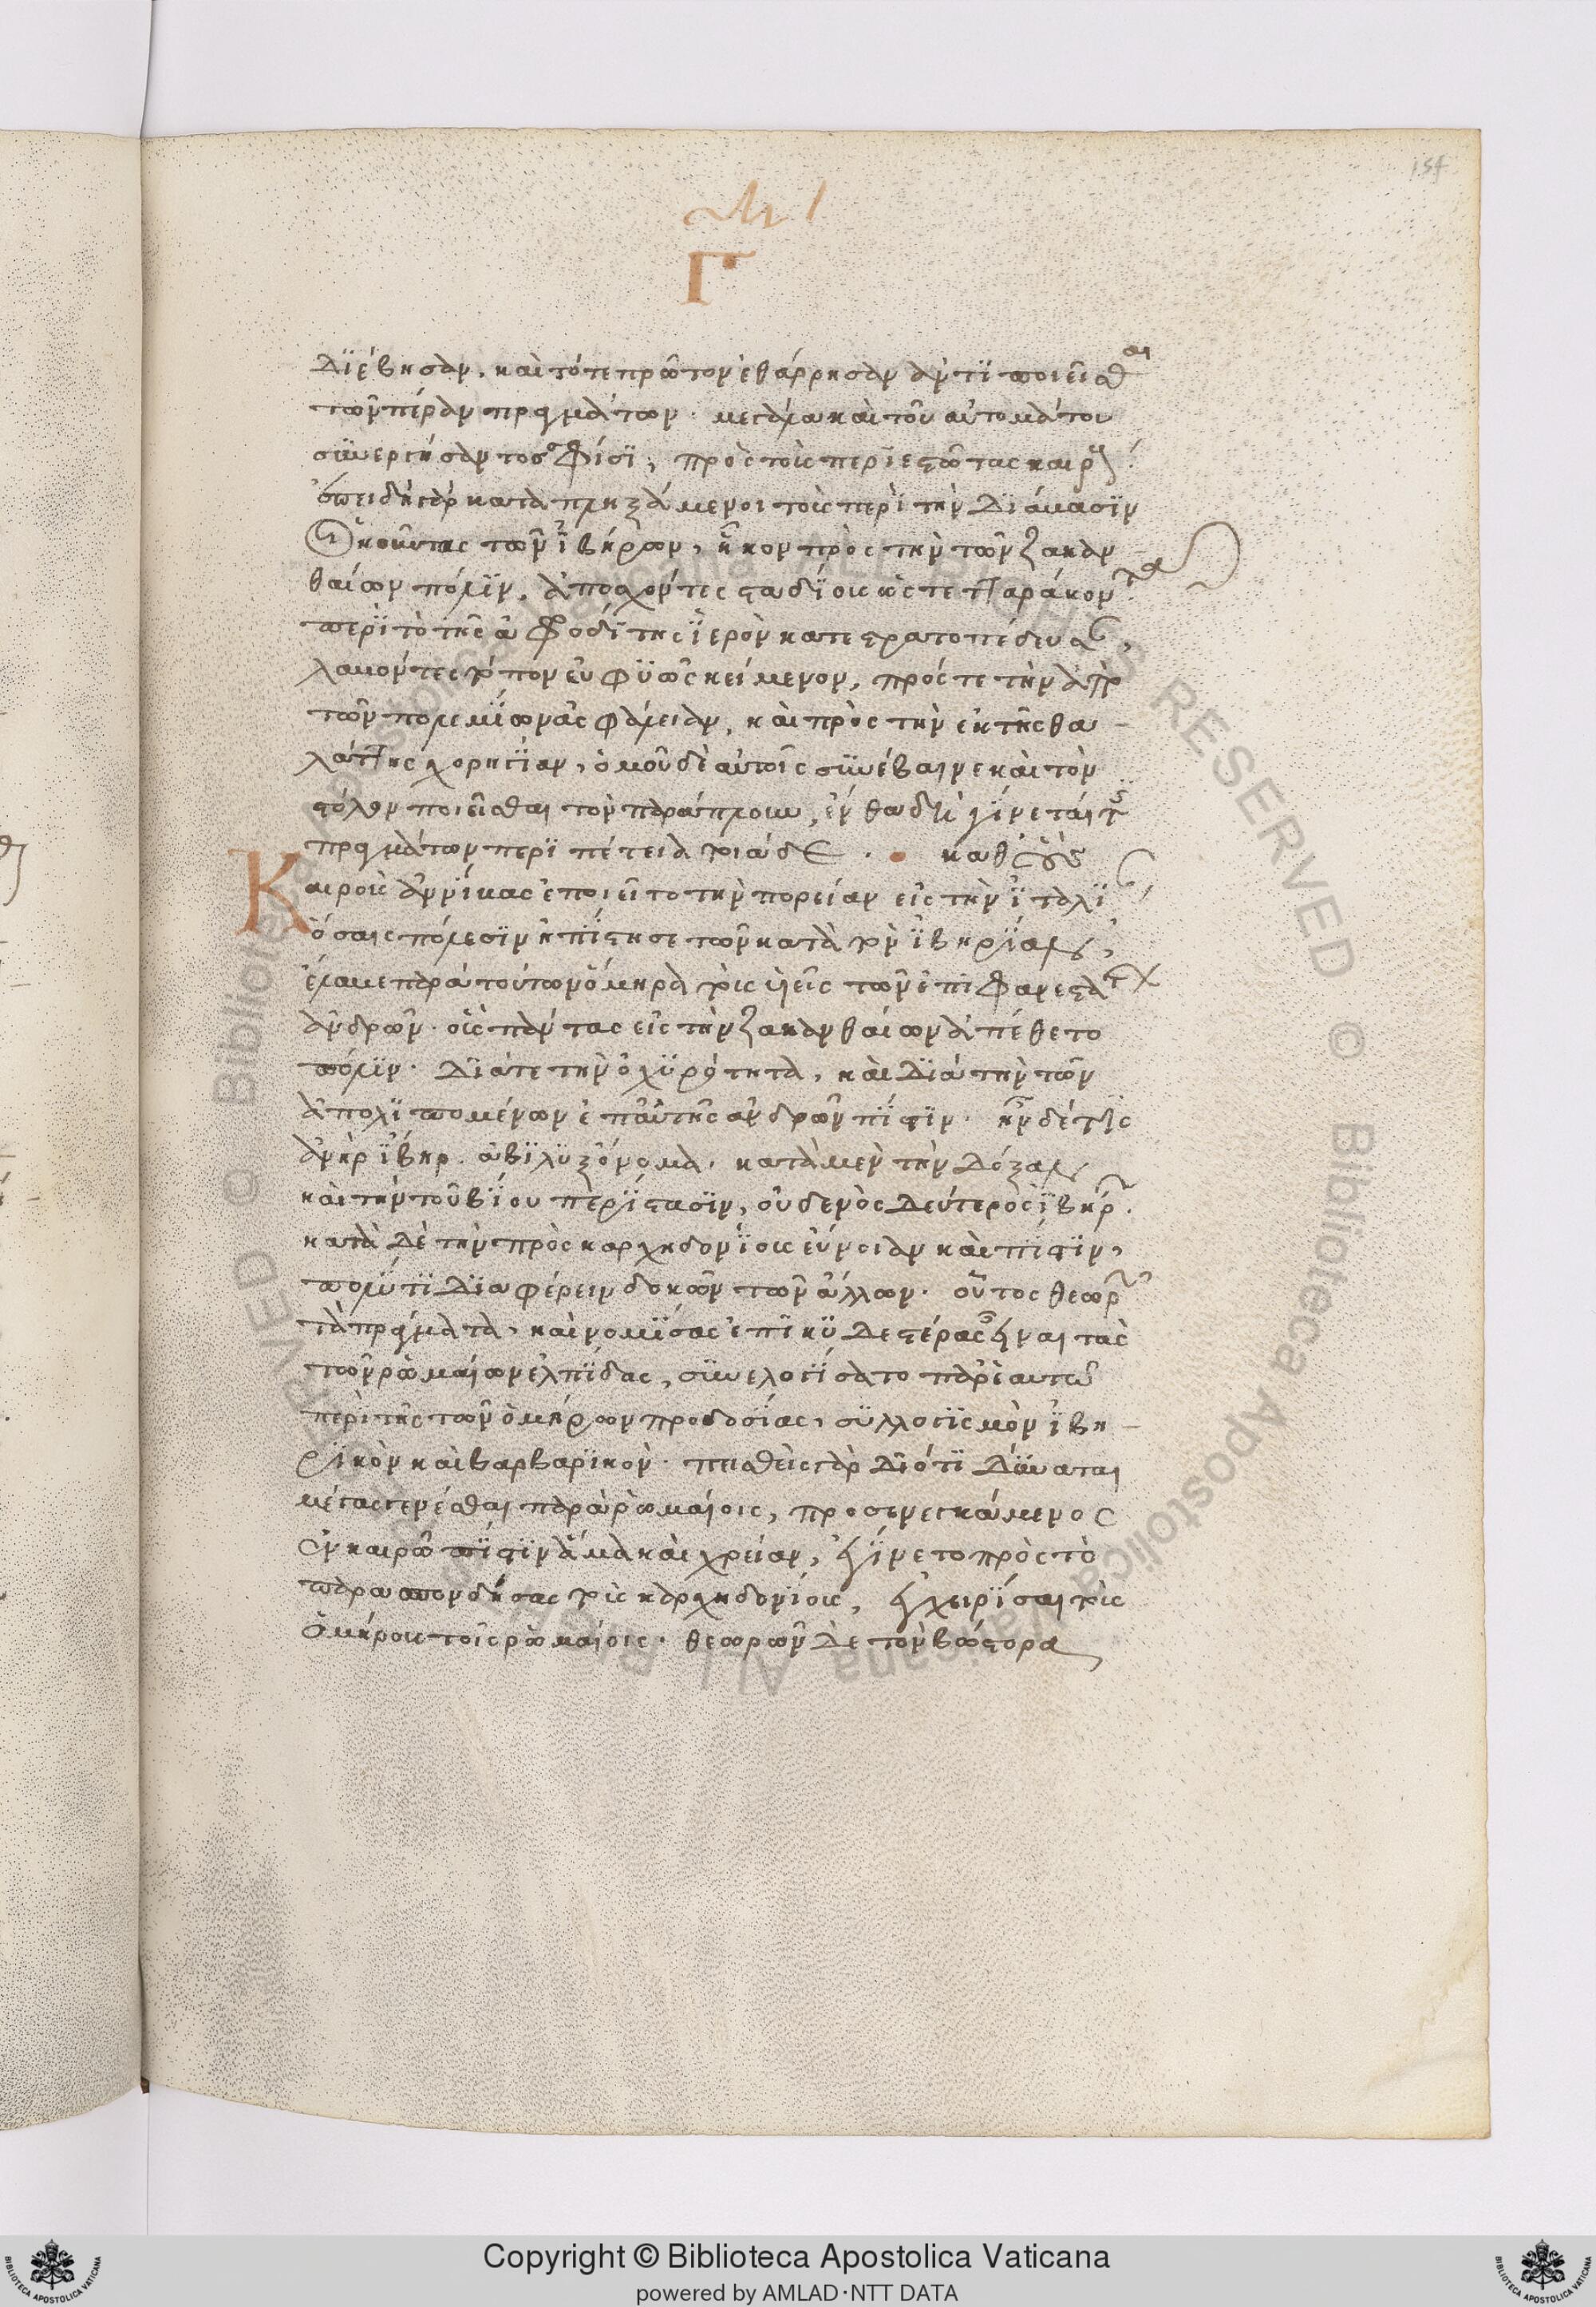 154
Γ
διέβησαν. καὶ τότε πρῶτον ἐθάρρησαν ἀντιποιεῖσθαι
τῶν πέραν πραγμάτων. μεγάλα καὶ τοῦ αὐτομάτου
συνεργήσαντος σφίσι, πρὸς τοὺς περιεστῶτας καιρούς.
ἐπειδὴ γὰρ καταπληξάμενοι τοὺς περὶ τὴν διάβασιν
οἰκοῦντας τῶν ἰβήρων, ἧκον πρὸς τὴν τῶν ζακαν
θαίων πόλιν, ἀποσχόντες σταδίους ὡς τετταράκοντα
περὶ τὸ τῆς ἀφροδίτης ἱερὸν κατεστρατοπέδευσαν,
λαβόντες τόπον εὐφυῶς κείμενον, πρός τε τὴν ἀπὸ
τῶν πολεμίων ἀσφάλειαν, καὶ πρὸς τὴν ἐκ τῆς θα
λάττης χορηγίαν, ὁμοῦ δὲ αὐτοῖς συνέβαινε καὶ τὸν
στόλον ποιεῖσθαι τὸν παράπλουν, ἔνθα δὴ γίνεταί τις
πραγμάτων περιπέτεια τοιάδε. καθ' οὓς
Καιροὺς ἀννίβας ἐποιεῖτο τὴν πορείαν εἰς τὴν ἰταλί
ὅσαις πόλεσιν ἠπίστησε τῶν κατὰ τὴν ἰβηρίαν,
ἔλαβε παρὰ τούτων ὅμηρα τοὺς υἱεῖς τῶν ἐπιφανεστάτων
ἀνδρῶν. οὓς πάντας εἰς τὴν ζακανθαίων ἀπέθετο
πόλιν. διά τε τὴν ὀχυρότητα, καὶ διὰ τὴν τῶν
ἀπολιπομένων ἐπ' αὐτῆς ἀνδρῶν πίστιν. ἦν δέ τις
ἀνὴρ ἴβηρ. ἀβίλυξ ὄνομα. κατὰ μὲν τὴν δόξαν
καὶ τὴν τοῦ βίου περίστασιν, οὐδενὸς δεύτερος ἰβήρων.
κατὰ δὲ τὴν πρὸς καρχηδονίους εὔνοιαν καὶ πίστιν,
πολύ τι διαφέρειν δοκῶν τῶν ἄλλων. οὗτος θεωρῶν
τὰ πράγματα, καὶ νομίσας ἐπικυδεστέρας εἶναι τὰς
τῶν ρωμαίων ἐλπίδας, συνελογίσατο παρ' ἑαυτῷ
περὶ τῆς τῶν ὁμήρων προδοσίας, συλλογισμὸν ἰβη
ρικὸν καὶ βαρβαρικόν. πεισθεὶς γὰρ διότι δύναται
μέγας γενέσθαι παρὰ ρωμαίοις, προσενεγκάμενος
ἐν καιρῷ πίστιν ἅμα καὶ χρείαν, ἐγίνετο πρὸς τὸ
παρασπονδήσας τοὺς καρχηδονίους, ἐγχειρίσαι τοὺς
ὁμήρους τοῖς ρωμαίοις. θεωρῶν δὲ τὸν βώστορα
Copyright © Biblioteca Apostolica Vaticana
powered by AMLAD·NTT DATA